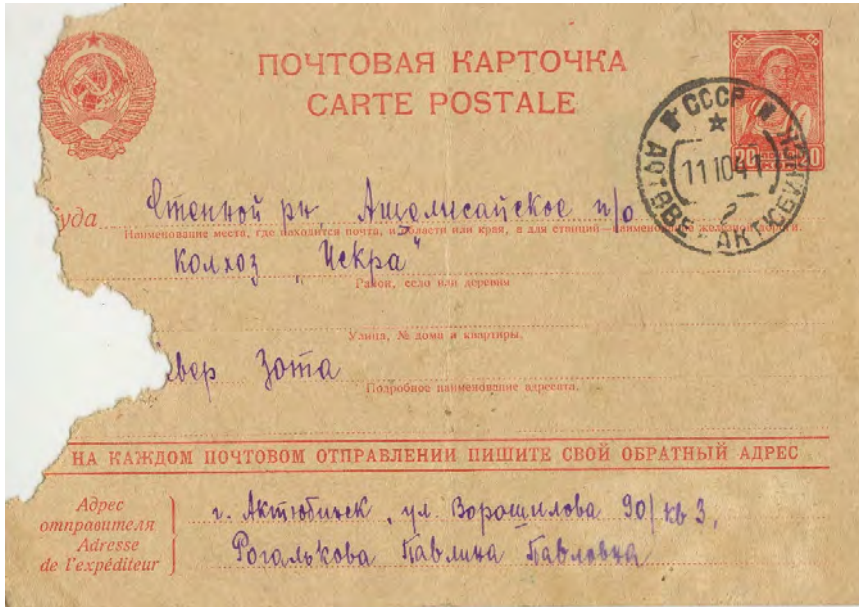 ПОЧТОВАЯ КАРТОЧКА
CARTE POSTALE
СССР
11 10 41
20 20
уда Степной рн, Ащелисайское п/о
Наименование места, где находится почта, и области или края, а для станций—наименование железной дороги.
колхоз „Искра“
Район, село или деревня
Улица, № дома и квартиры.
Зота
Подробное наименование адресата.
НА КАЖДОМ ПОЧТОВОМ ОТПРАВЛЕНИИ ПИШИТЕ СВОЙ ОБРАТНЫЙ АДРЕС
Адрес
отправителя
Adresse
de l'expéditeur
г. Актюбинск, ул. Ворошилова 90/кв 3,
Рогалькова Павлина Павловна